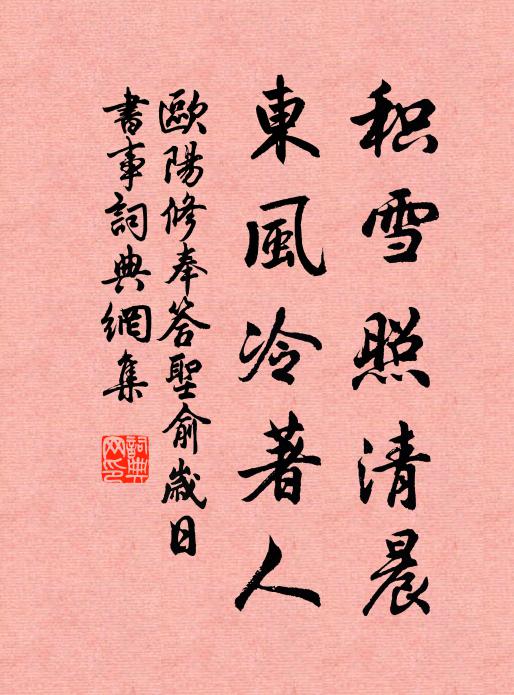 积雪照清晨
東風冷著人
歐陽修奉答聖俞歲日
書事詞典網集
詞典
网印